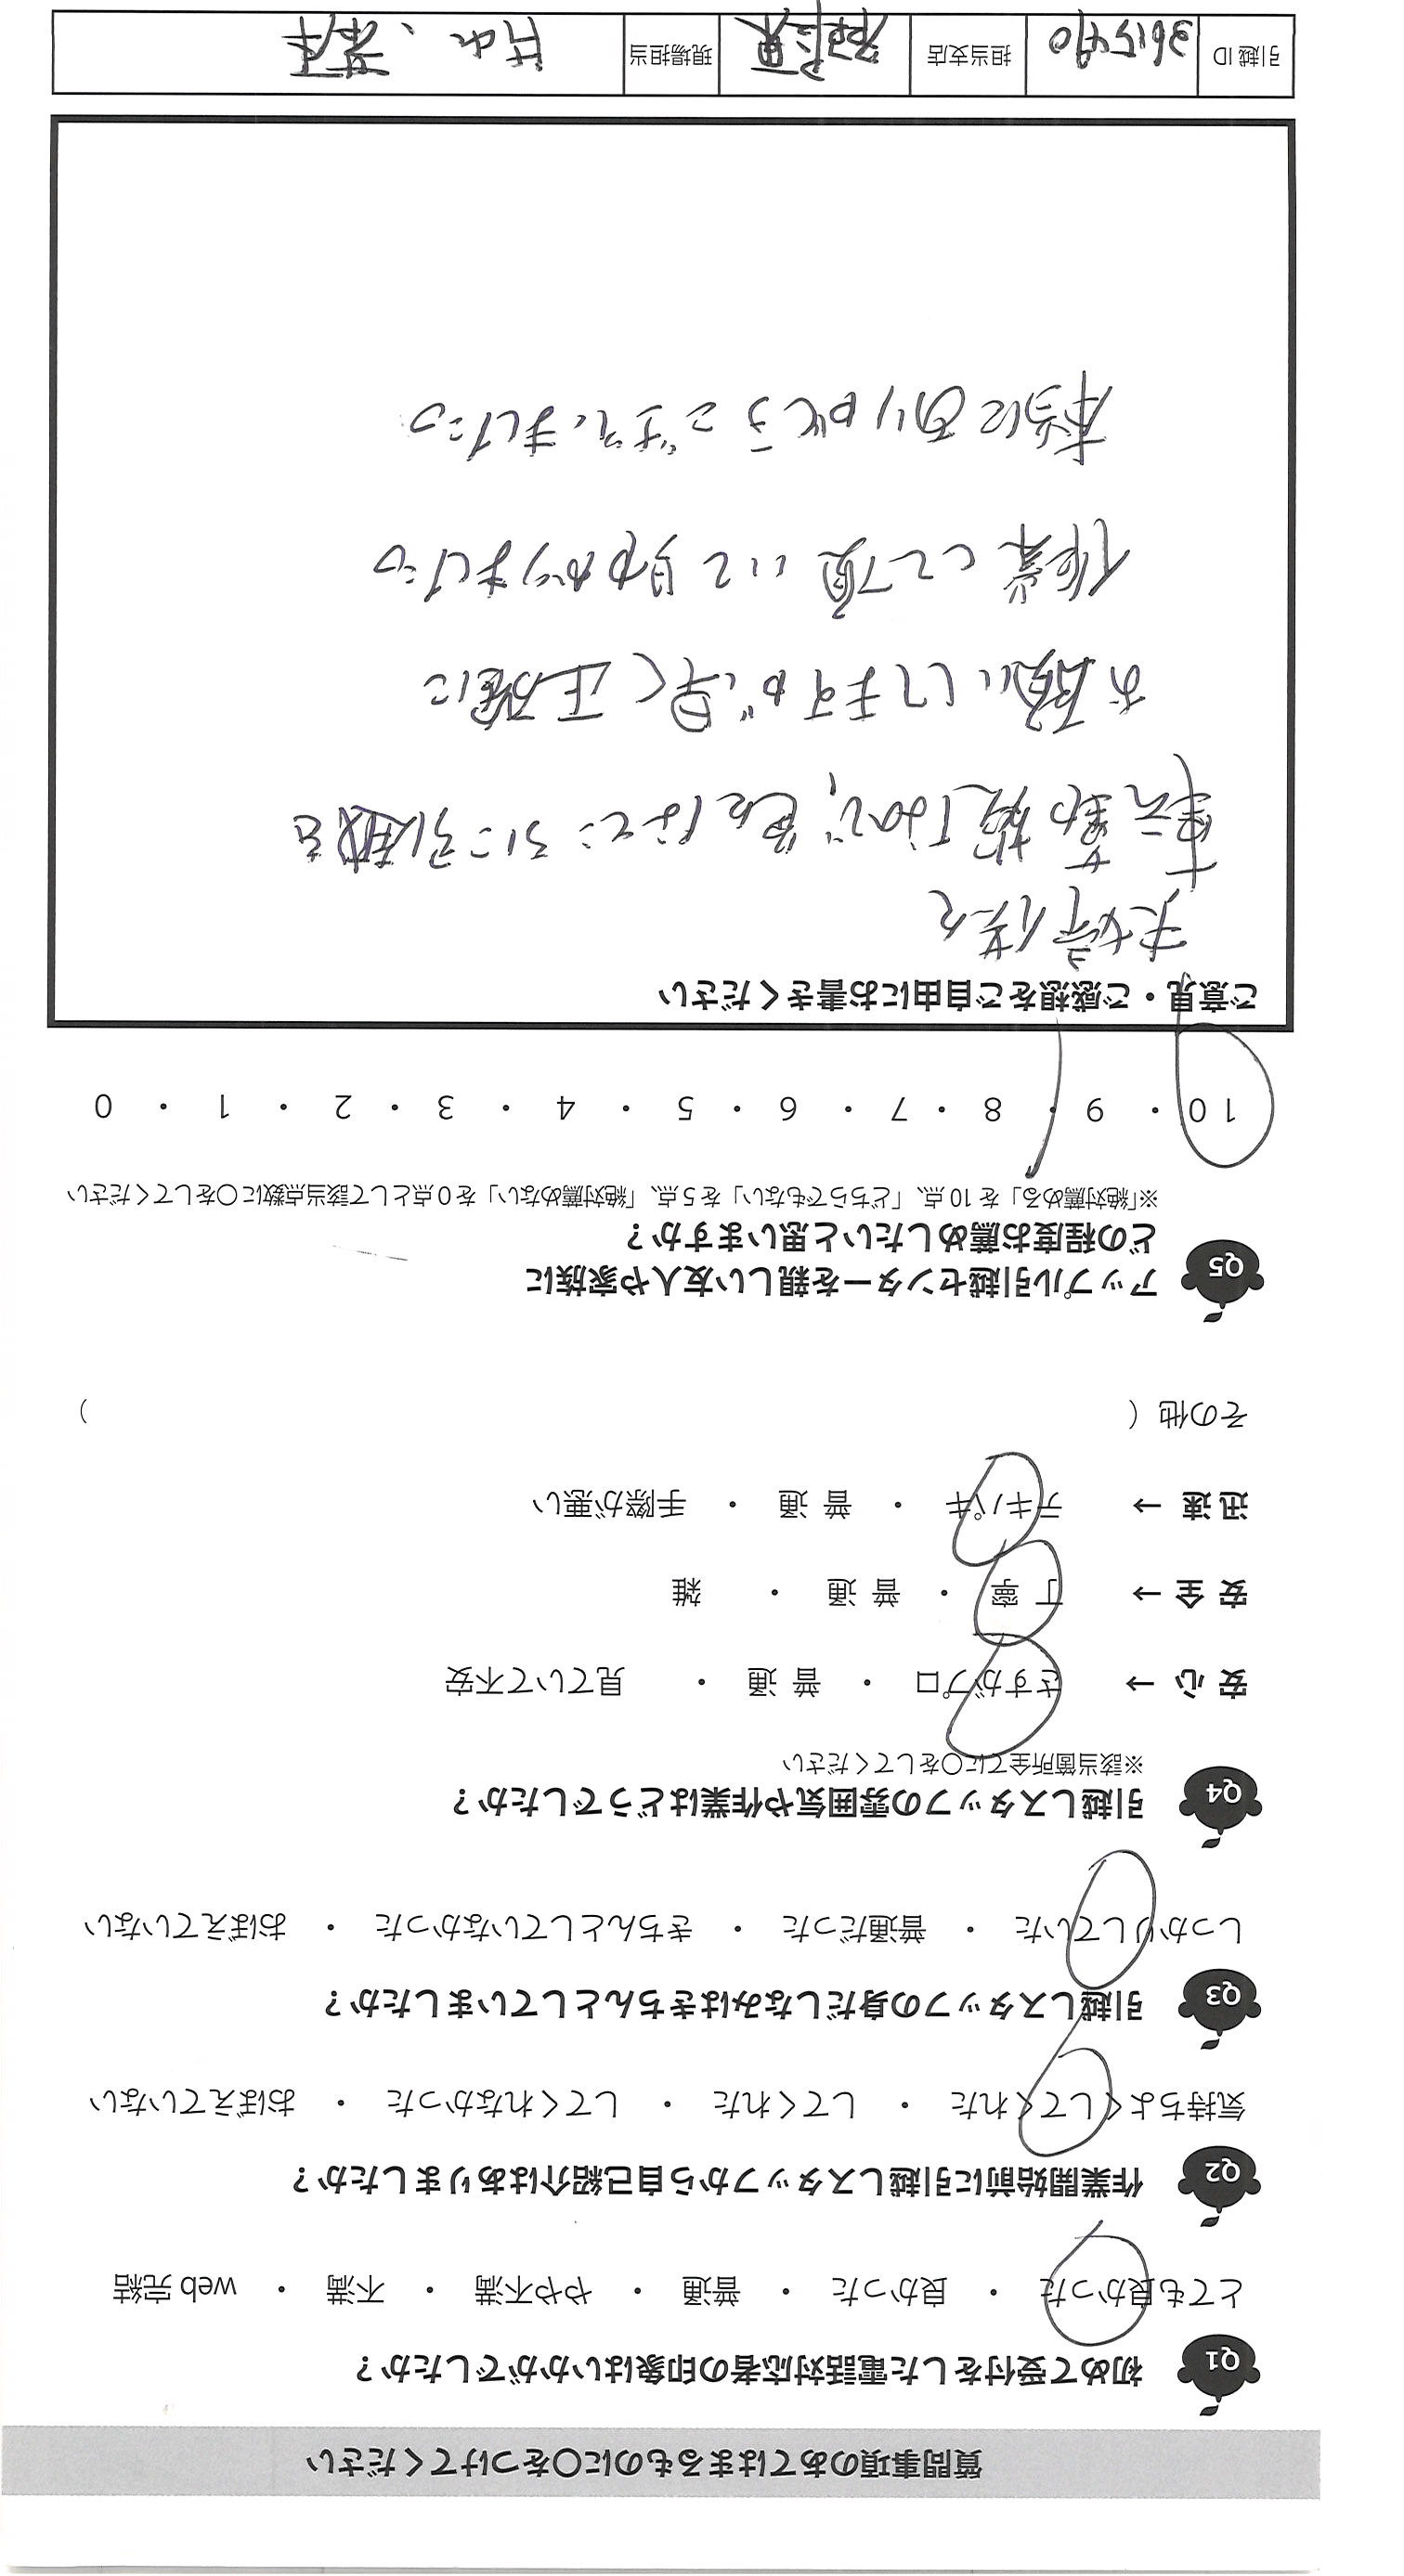 質問事項のあてはまるものに〇をつけてください
Q1 初めて受付をした電話対応者の印象はいかがでしたか？
とても良かった ・ 良かった ・ 普通 ・ やや不満 ・ 不満 ・ web 完結
Q2 作業開始前に引越しスタッフから自己紹介はありましたか？
気持ちよくしてくれた ・ してくれた ・ してくれなかった ・ おぼえていない
Q3 引越しスタッフの身だしなみはきちんとしていましたか？
しっかりしていた ・ 普通だった ・ きちんとしていなかった ・ おぼえていない
Q4 引越しスタッフの雰囲気や作業はどうでしたか？
※該当箇所全てに〇をしてください
安 心 → さすがプロ ・ 普 通 ・ 見ていて不安
安 全 → 丁 寧 ・ 普 通 ・ 雑
迅 速 → テキパキ ・ 普 通 ・ 手際が悪い
その他（ ）
Q5 アップル引越センターを親しい友人や家族に
どの程度お薦めしたいと思いますか？
※「絶対薦める」を 10 点、「どちらでもない」を 5 点、「絶対薦めない」を 0 点として該当点数に〇をしてください
10 ・ 9 ・ 8 ・ 7 ・ 6 ・ 5 ・ 4 ・ 3 ・ 2 ・ 1 ・ 0
ご意見・ご感想をご自由にお書きください
夫婦供々
転勤族なので、色んなところに引越を
お願いしてますが、早く正確に
作業して頂いて助かりました。
本当にありがとうございました。
引越 ID 3615490 担当支店 現場担当